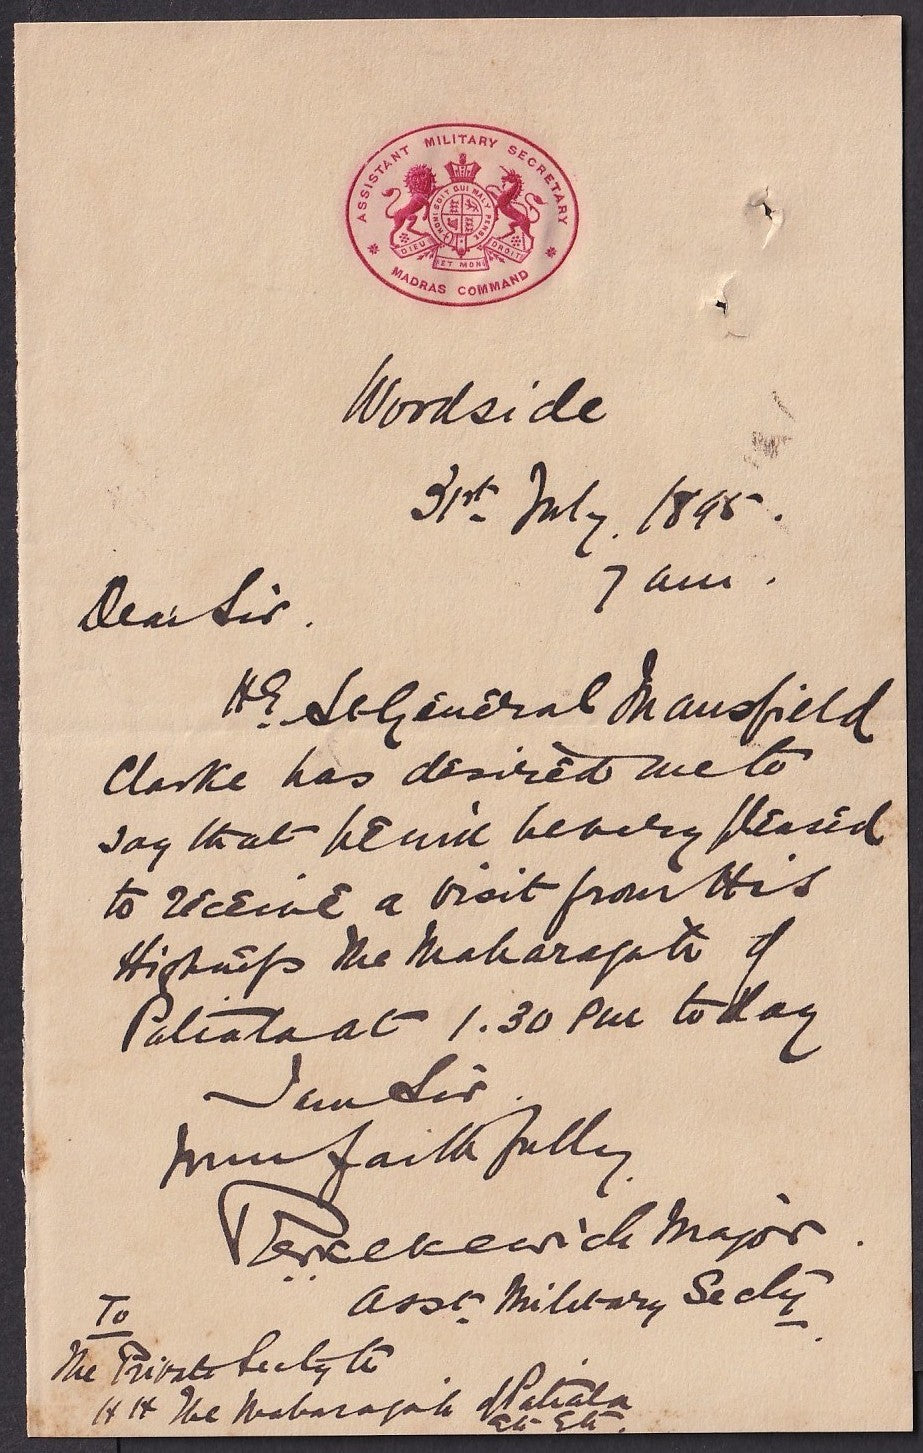 ASSISTANT MILITARY SECRETARY
HONI SOIT QUI MAL Y PENSE
DIEU ET MON DROIT
MADRAS COMMAND
Woodside
31st July. 1895.
7 am.
Dear Sir.
HE. Lt General Mansfield
Clarke has desired me to
say that he will be very pleased
to receive a visit from His
Highness the Maharajah of
Patiala at 1.30 PM to day
I am Sir.
Yours faithfully
Major.
Asst. Military Secty.
To
The Private Secty to
HH The Maharajah of Patiala
etc Etc.